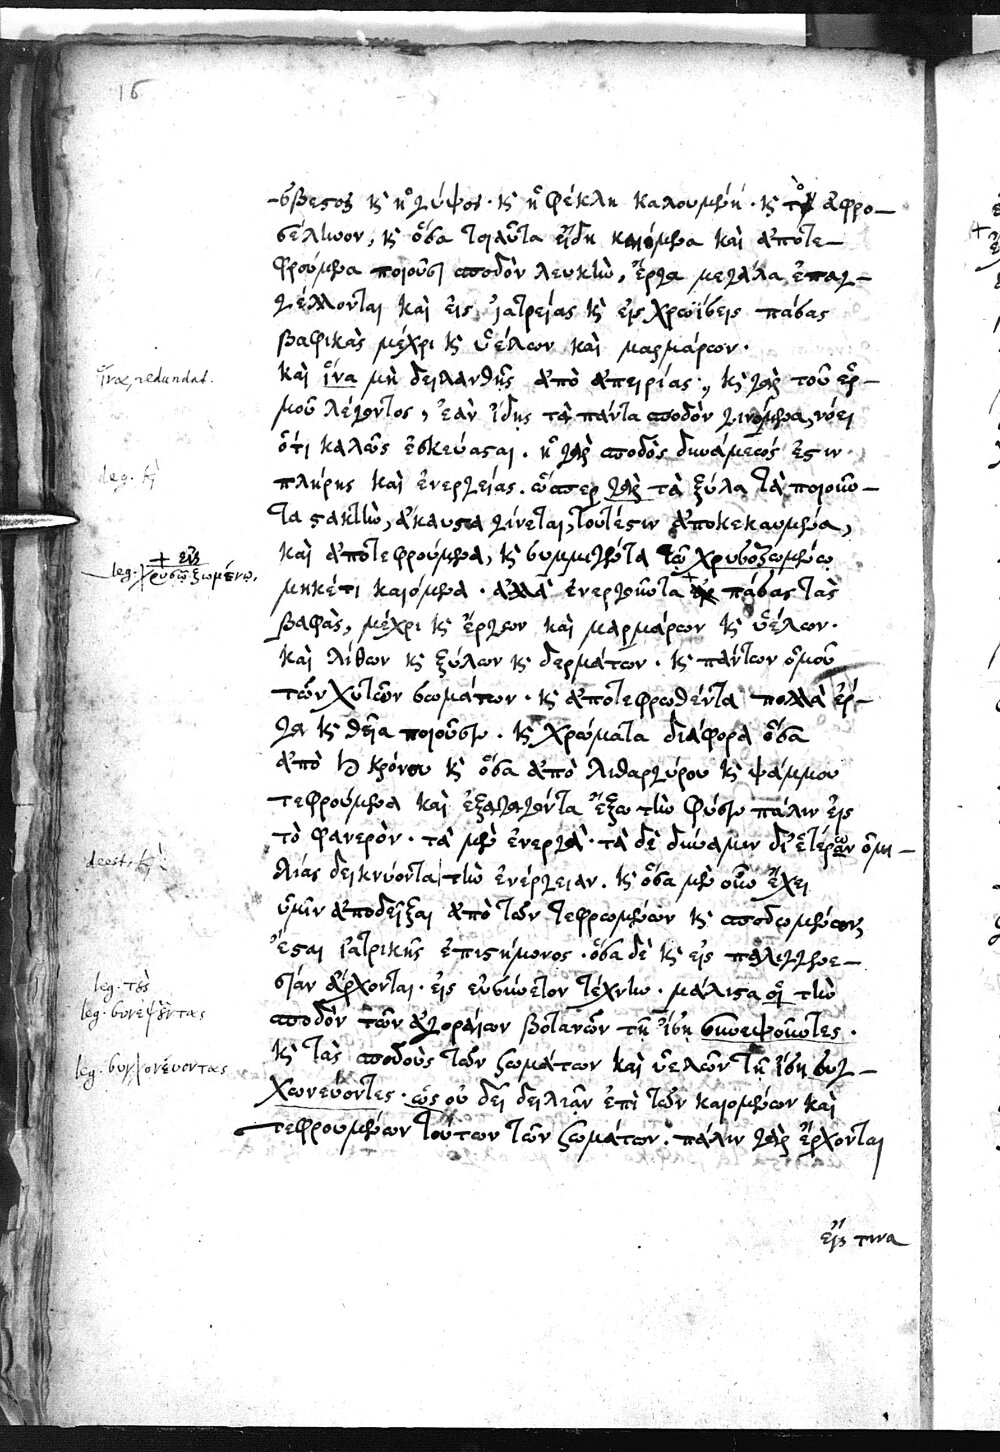 16
-σβεστος κ ἡ γύψος· κ ἡ φέκλη καλουμένη· κ τὸ ἀφρο-
σέληνον, κ ὅσα τοιαῦτα εἴδη καιόμενα καὶ ἀποτε-
φρούμενα ποιοῦσι σποδὸν λευκὴν, ἔργα μεγάλα ἐπαγ-
γέλλονται καὶ εἰς ἰατρείας κ εἰς χρωΐσεις πάσας
βαφικὰς μέχρι κ ὑέλων καὶ μαρμάρων·
ἵνα, redundat.
καὶ ἵνα μὴ δειλανθῇς ἀπὸ ἀπειρίας·, κ γὰρ τοῦ ἑρ-
μοῦ λέγοντος, ἐὰν ἴδῃς τὰ πάντα σποδὸν γινόμενα, νόει
ὅτι καλῶς ἐσκεύασαι. ἡ γὰρ σποδὸς δυνάμεώς ἐστιν
leg. κ
πλήρης καὶ ἐνεργείας. ὥσπερ γὰρ τὰ ξύλα τὰ ποιοῦν-
τα στακτὴν, ἄκαυστα γίνεται, τουτέστιν ἀποκεκαυμένα,
καὶ ἀποτεφρούμενα, κ συμμιγέντα τῷ χρυσοζωμένῳ
leg. χρυσῷ ζωμένῳ.
μηκέτι καιόμενα. ἀλλὰ ἐνεργοῦντα πάσας τὰς
βαφὰς, μέχρι κ ἔργων καὶ μαρμάρων κ ὑέλων·
καὶ λίθων κ ξύλων κ δερμάτων. κ πάντων ὁμοῦ
τῶν χυτῶν σωμάτων. κ ἀποτεφρωθέντα πολλὰ ἔρ-
γα κ θεῖα ποιοῦσιν. κ χρώματα διάφορα ὅσα
ἀπὸ ♄ κρόνου κ ὅσα ἀπὸ λιθαργύρου κ ψάμμου
τεφρούμενα καὶ ἐξαγαγόντα ἔξω τὴν φύσιν πάλιν εἰς
τὸ φανερὸν. τὰ μὲν ἐνεργὰ· τὰ δὲ δύναμιν δι' ἑτέρων ὁμι-
deest, κ
λίας δεικνύοντα τὴν ἐνέργειαν. κ ὅσα μὲν οὖν ἔχει
ὑμῖν ἀποδεῖξαι ἀπὸ τῶν τεφρωμένων κ σποδωμένων,
ἔσται ἰατρικῆς ἐπιστήμονος. ὅσα δὲ κ εἰς παλιγγενε-
leg. τὰς
σίαν ἄρχονται. εἰς εὐσύνετον τέχνην. μάλιστα οἱ τὴν
leg. συνεψοῦντας
σποδὸν τῶν ἀγοραίων βοτανῶν τῇ ἴσῃ συνεψοῦντες.
leg. συγχονεύοντας
κ τὰς σποδοὺς τῶν ζωμάτων καὶ ὑελῶν τῇ ἴσῃ συγ-
χωνεύοντες. ὡς οὐ δεῖ δειλιᾶν ἐπὶ τῶν καιομένων καὶ
τεφρουμένων τούτων τῶν ζωμάτων. πάλιν γὰρ ἔρχονται
εἴς τινα